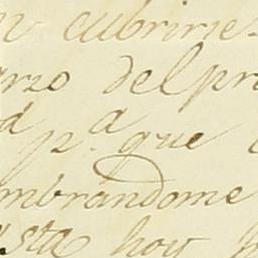 n cubrirse
arzo del pre
d p.ª que
mbrandome
sta hoy